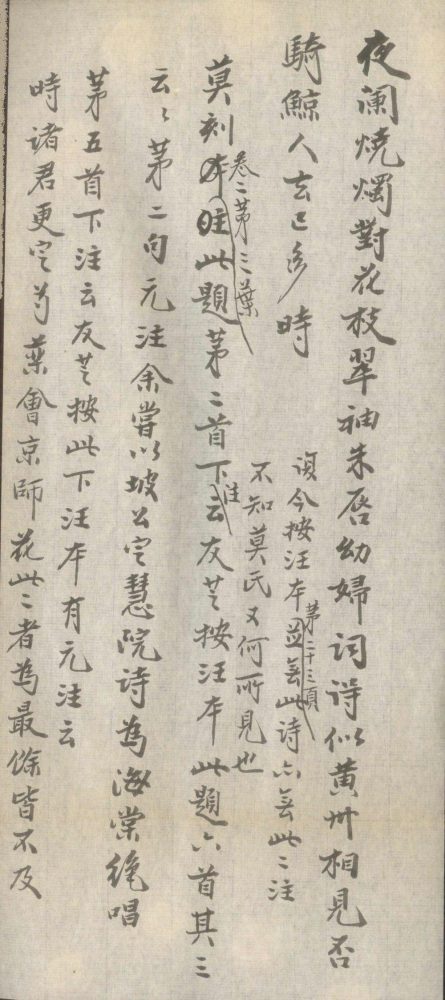 夜阑燒燭對花枝翠袖朱唇幼婦詞得似黃州相見否
騎鯨人去已多時
誤今按汪本並無此詩亦無此注
第二十三頁
不知莫氏又何所見也
卷二第三葉
莫刻本此題第二首下注云友芝按汪本此題六首其三
云云第二句元注余嘗以坡公定慧院詩為海棠絶唱
第五首下注云友芝按此下汪本有元注云
時諸君更定芍藥會京師花此者為最餘皆不及